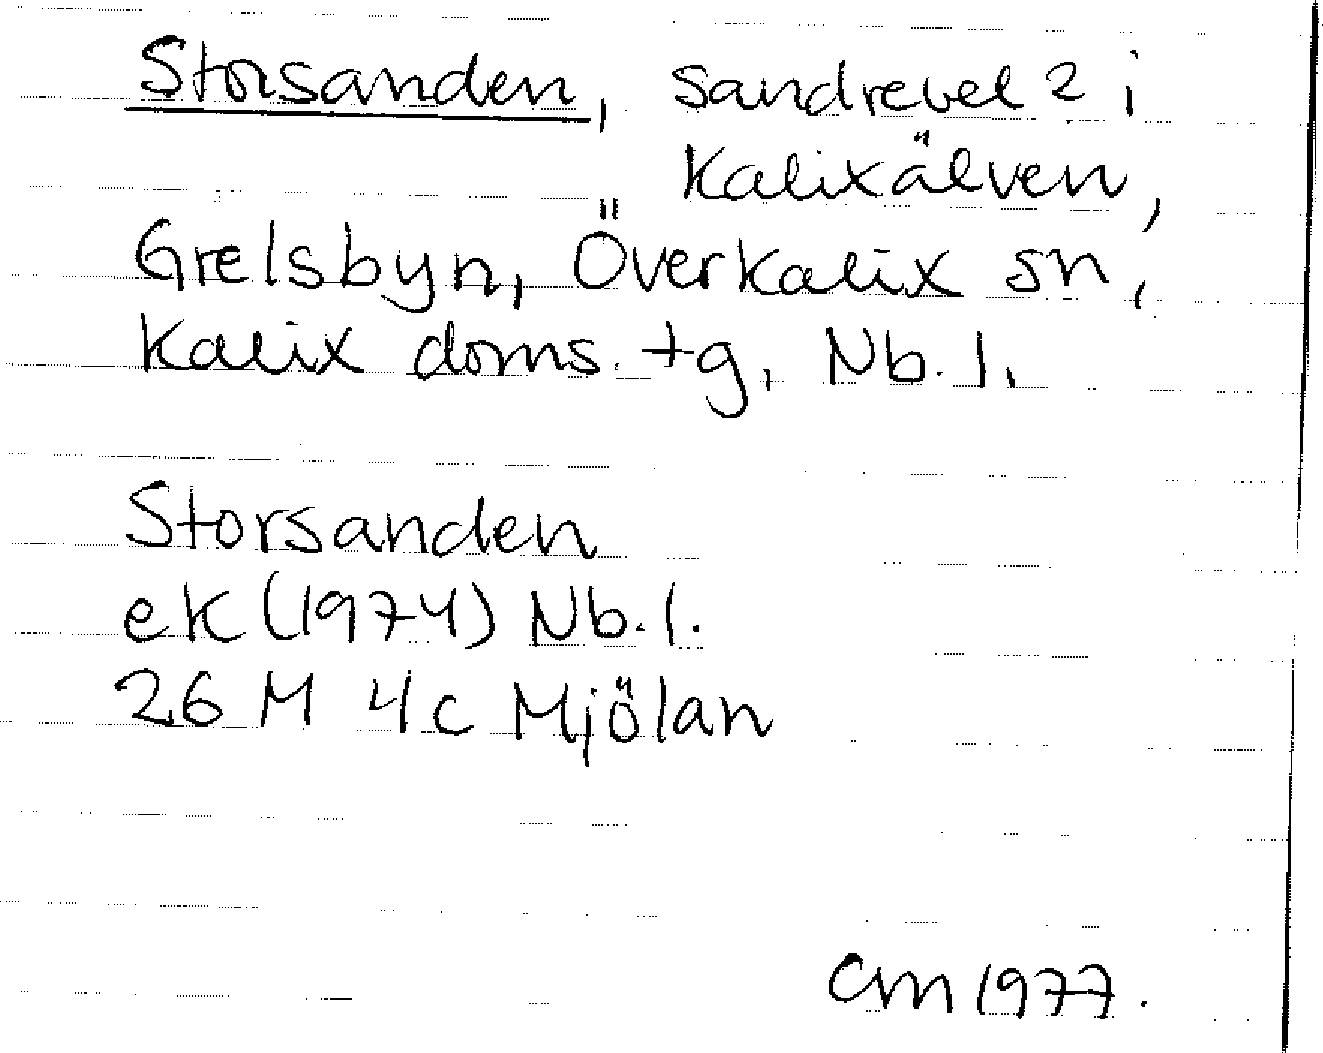 Storsanden, sandrevel? i
Kalixälven,
Grelsbyn, Överkalix sn,
Kalix doms. tg, Nb. l.
Storsanden
ek (1974) Nb. l.
26 M 4c Mjölan
CM 1977.